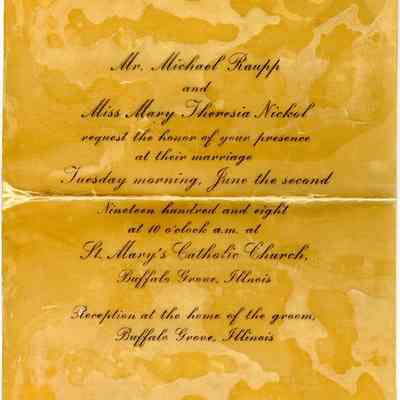 Mr. Michael Raupp
and
Miss Mary Theresia Nickol
request the honor of your presence
at their marriage
Tuesday morning, June the second
Nineteen hundred and eight
at 10 o'clock a.m. at
St. Mary's Catholic Church,
Buffalo Grove, Illinois
Reception at the home of the groom,
Buffalo Grove, Illinois